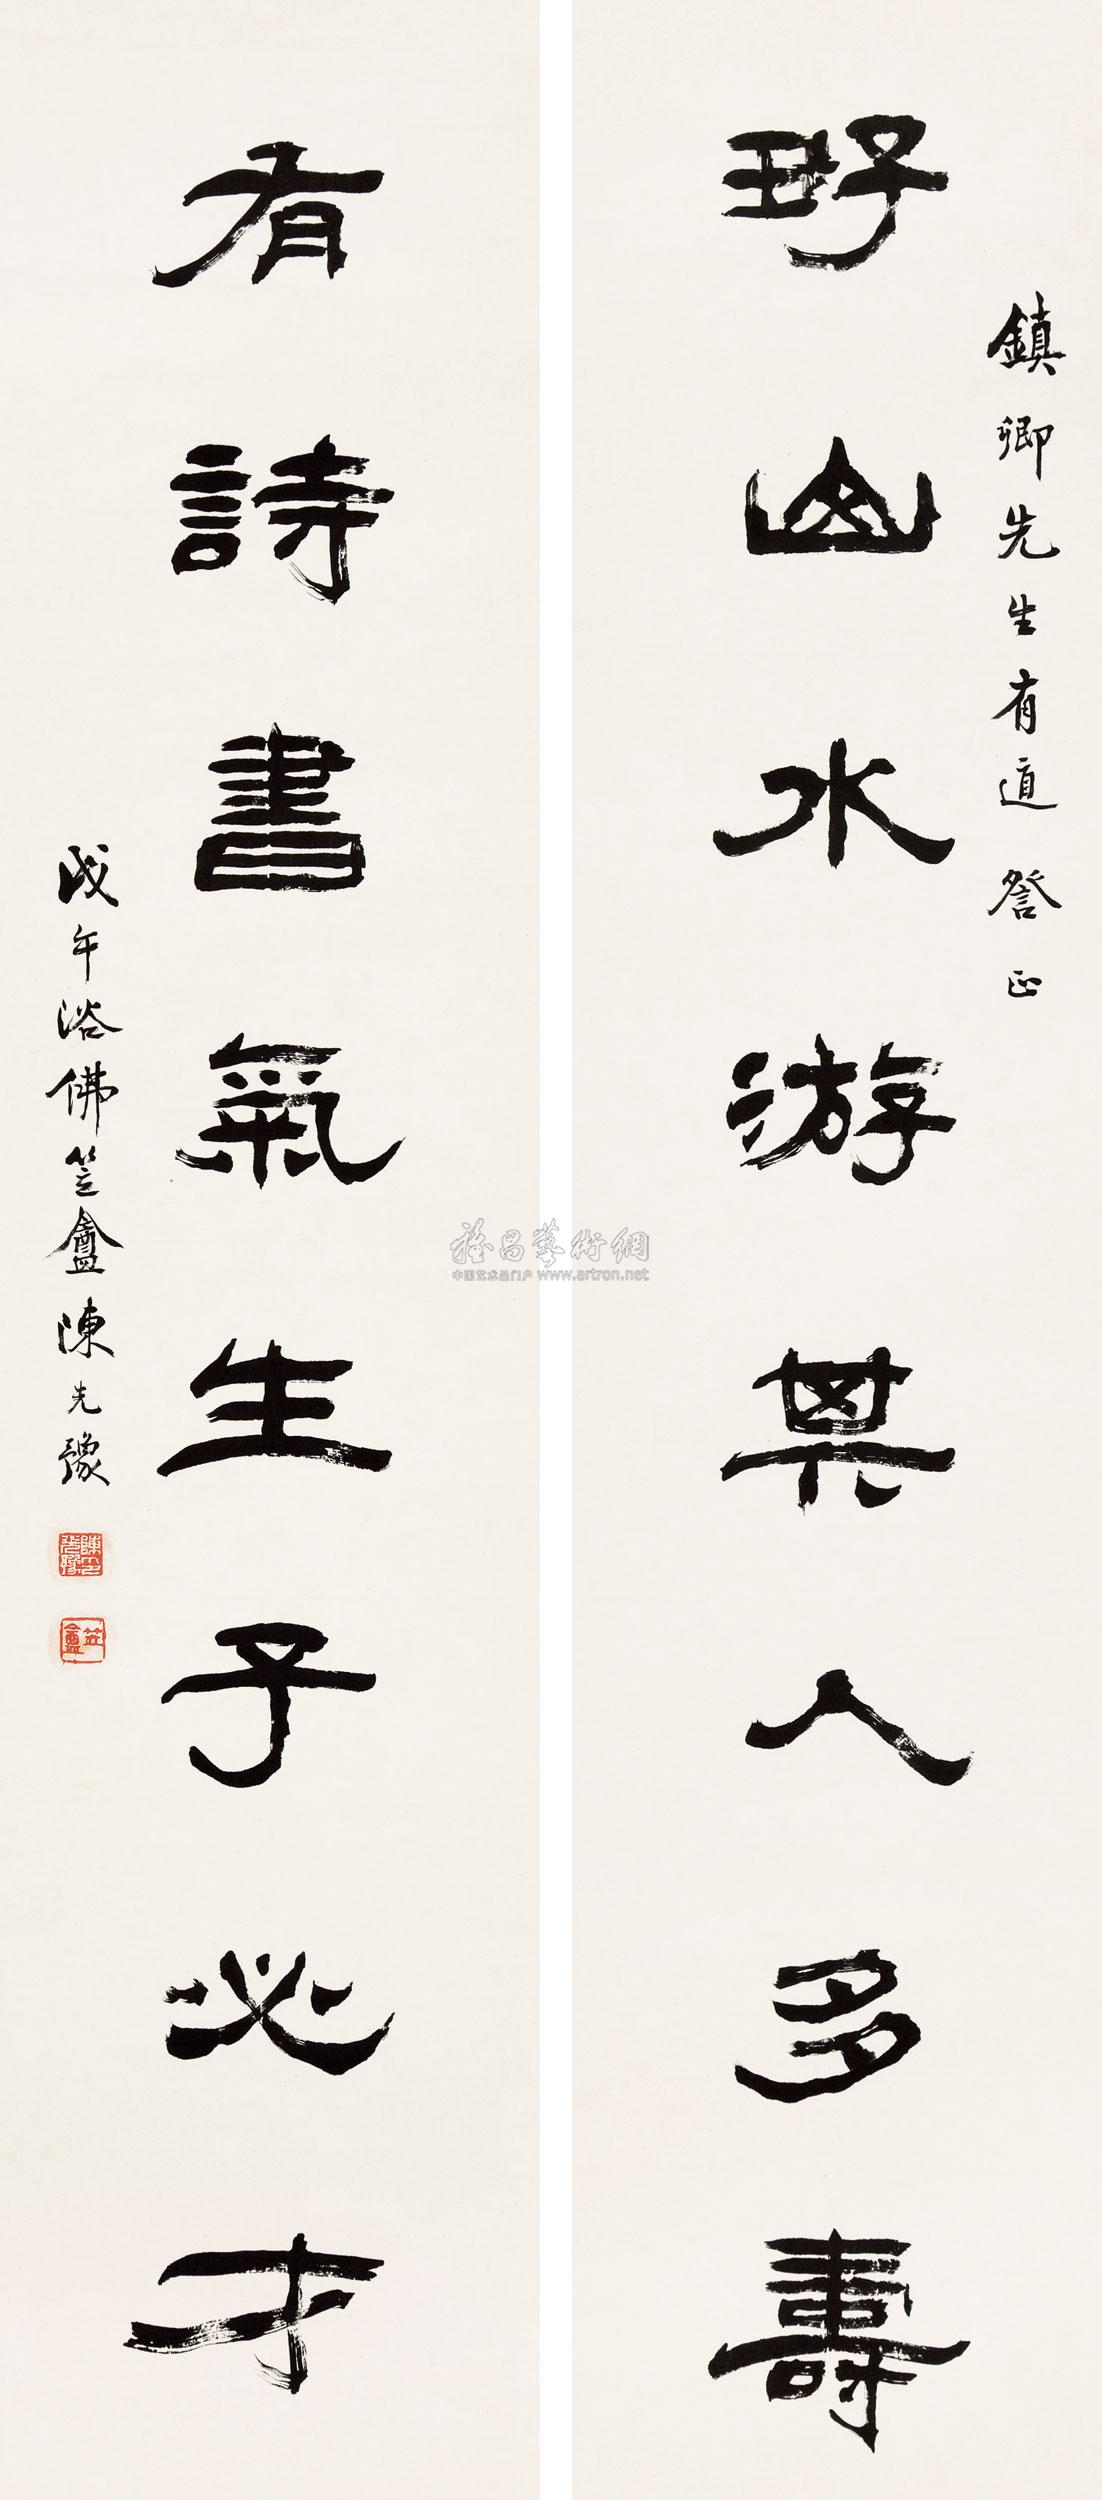 鎮卿先生有道詧正
好山水游其人多壽
有詩書氣生子必才
戊午浴佛笠盦陳先豫
陳先豫印
笠盦
雅昌藝術網
中国艺术品门户 www.artron.net